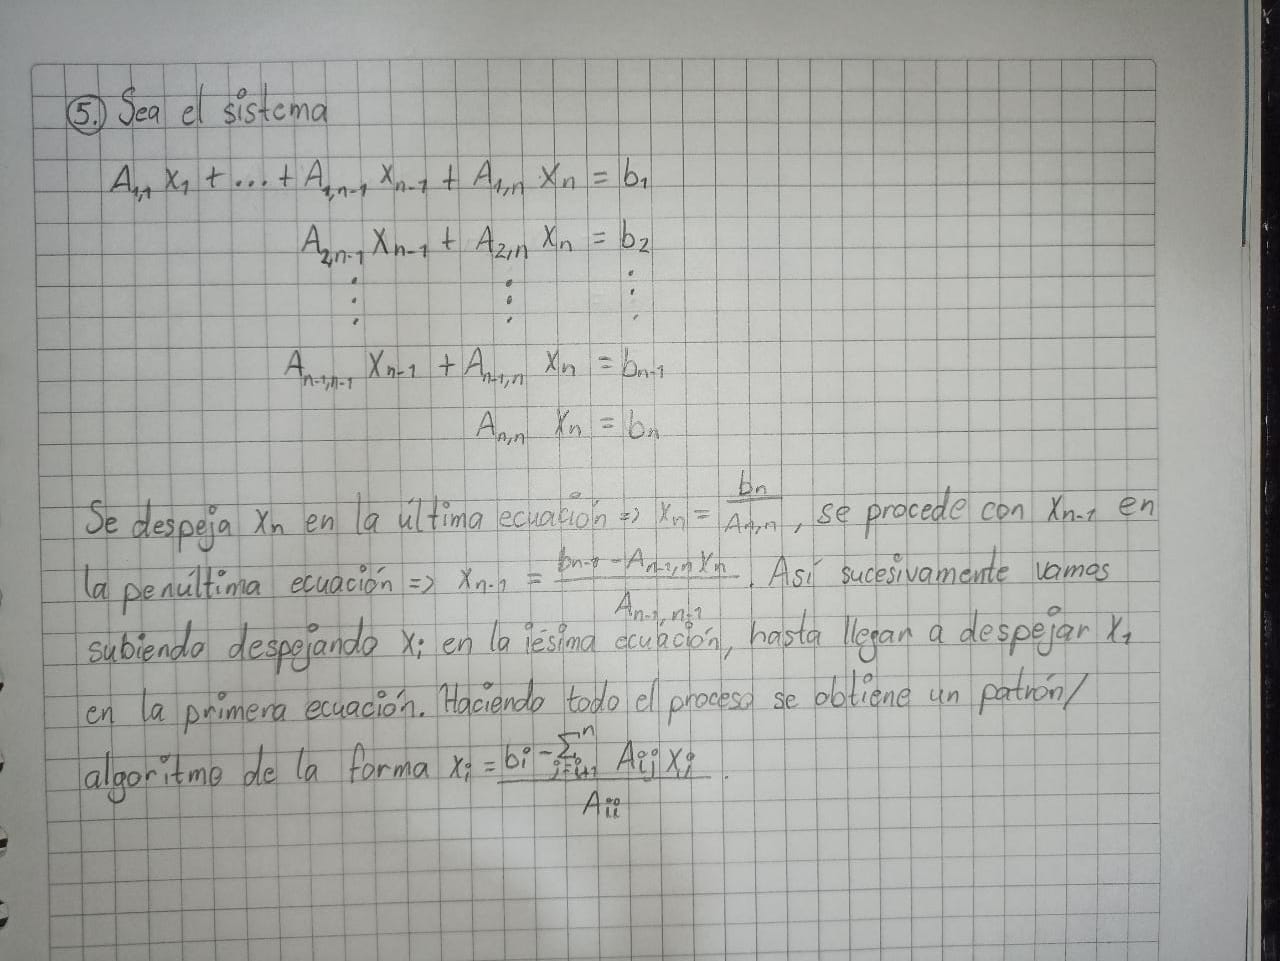 5. Sea el sistema
A₁,₁ x₁ + ... + A₁,ₙ₋₁ xₙ₋₁ + A₁,ₙ xₙ = b₁
A₂,ₙ₋₁ xₙ₋₁ + A₂,ₙ xₙ = b₂
⋮ ⋮ ⋮
Aₙ₋₁,ₙ₋₁ xₙ₋₁ + Aₙ₋₁,ₙ xₙ = bₙ₋₁
Aₙ,ₙ xₙ = bₙ
Se despeja xₙ en la última ecuación => xₙ = bₙ / Aₙ,ₙ , se procede con xₙ₋₁ en
la penúltima ecuación => xₙ₋₁ = (bₙ₋₁ - Aₙ₋₁,ₙ xₙ) / Aₙ₋₁,ₙ₋₁ . Así sucesivamente vamos
subiendo despejando xᵢ en la iésima ecuación, hasta llegar a despejar x₁
en la primera ecuación. Haciendo todo el proceso se obtiene un patrón/
algoritmo de la forma xᵢ = (bᵢ - Σⱼ₌ᵢ₊₁ⁿ Aᵢⱼ xⱼ) / Aᵢᵢ .